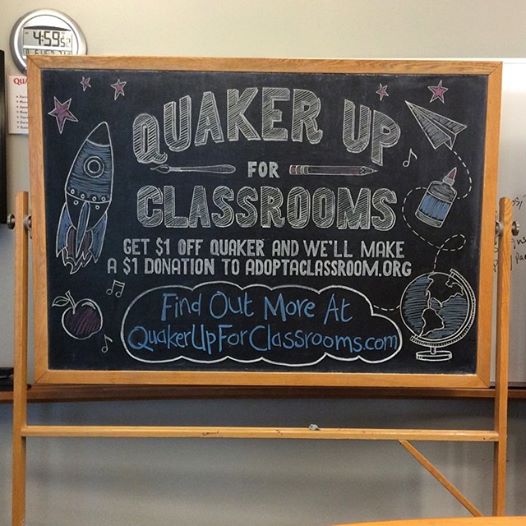 4:59
QUAKER UP
FOR
CLASSROOMS
GET $1 OFF QUAKER AND WE'LL MAKE
A $1 DONATION TO ADOPTACLASSROOM.ORG
Find Out More At
QuakerUpForClassrooms.com